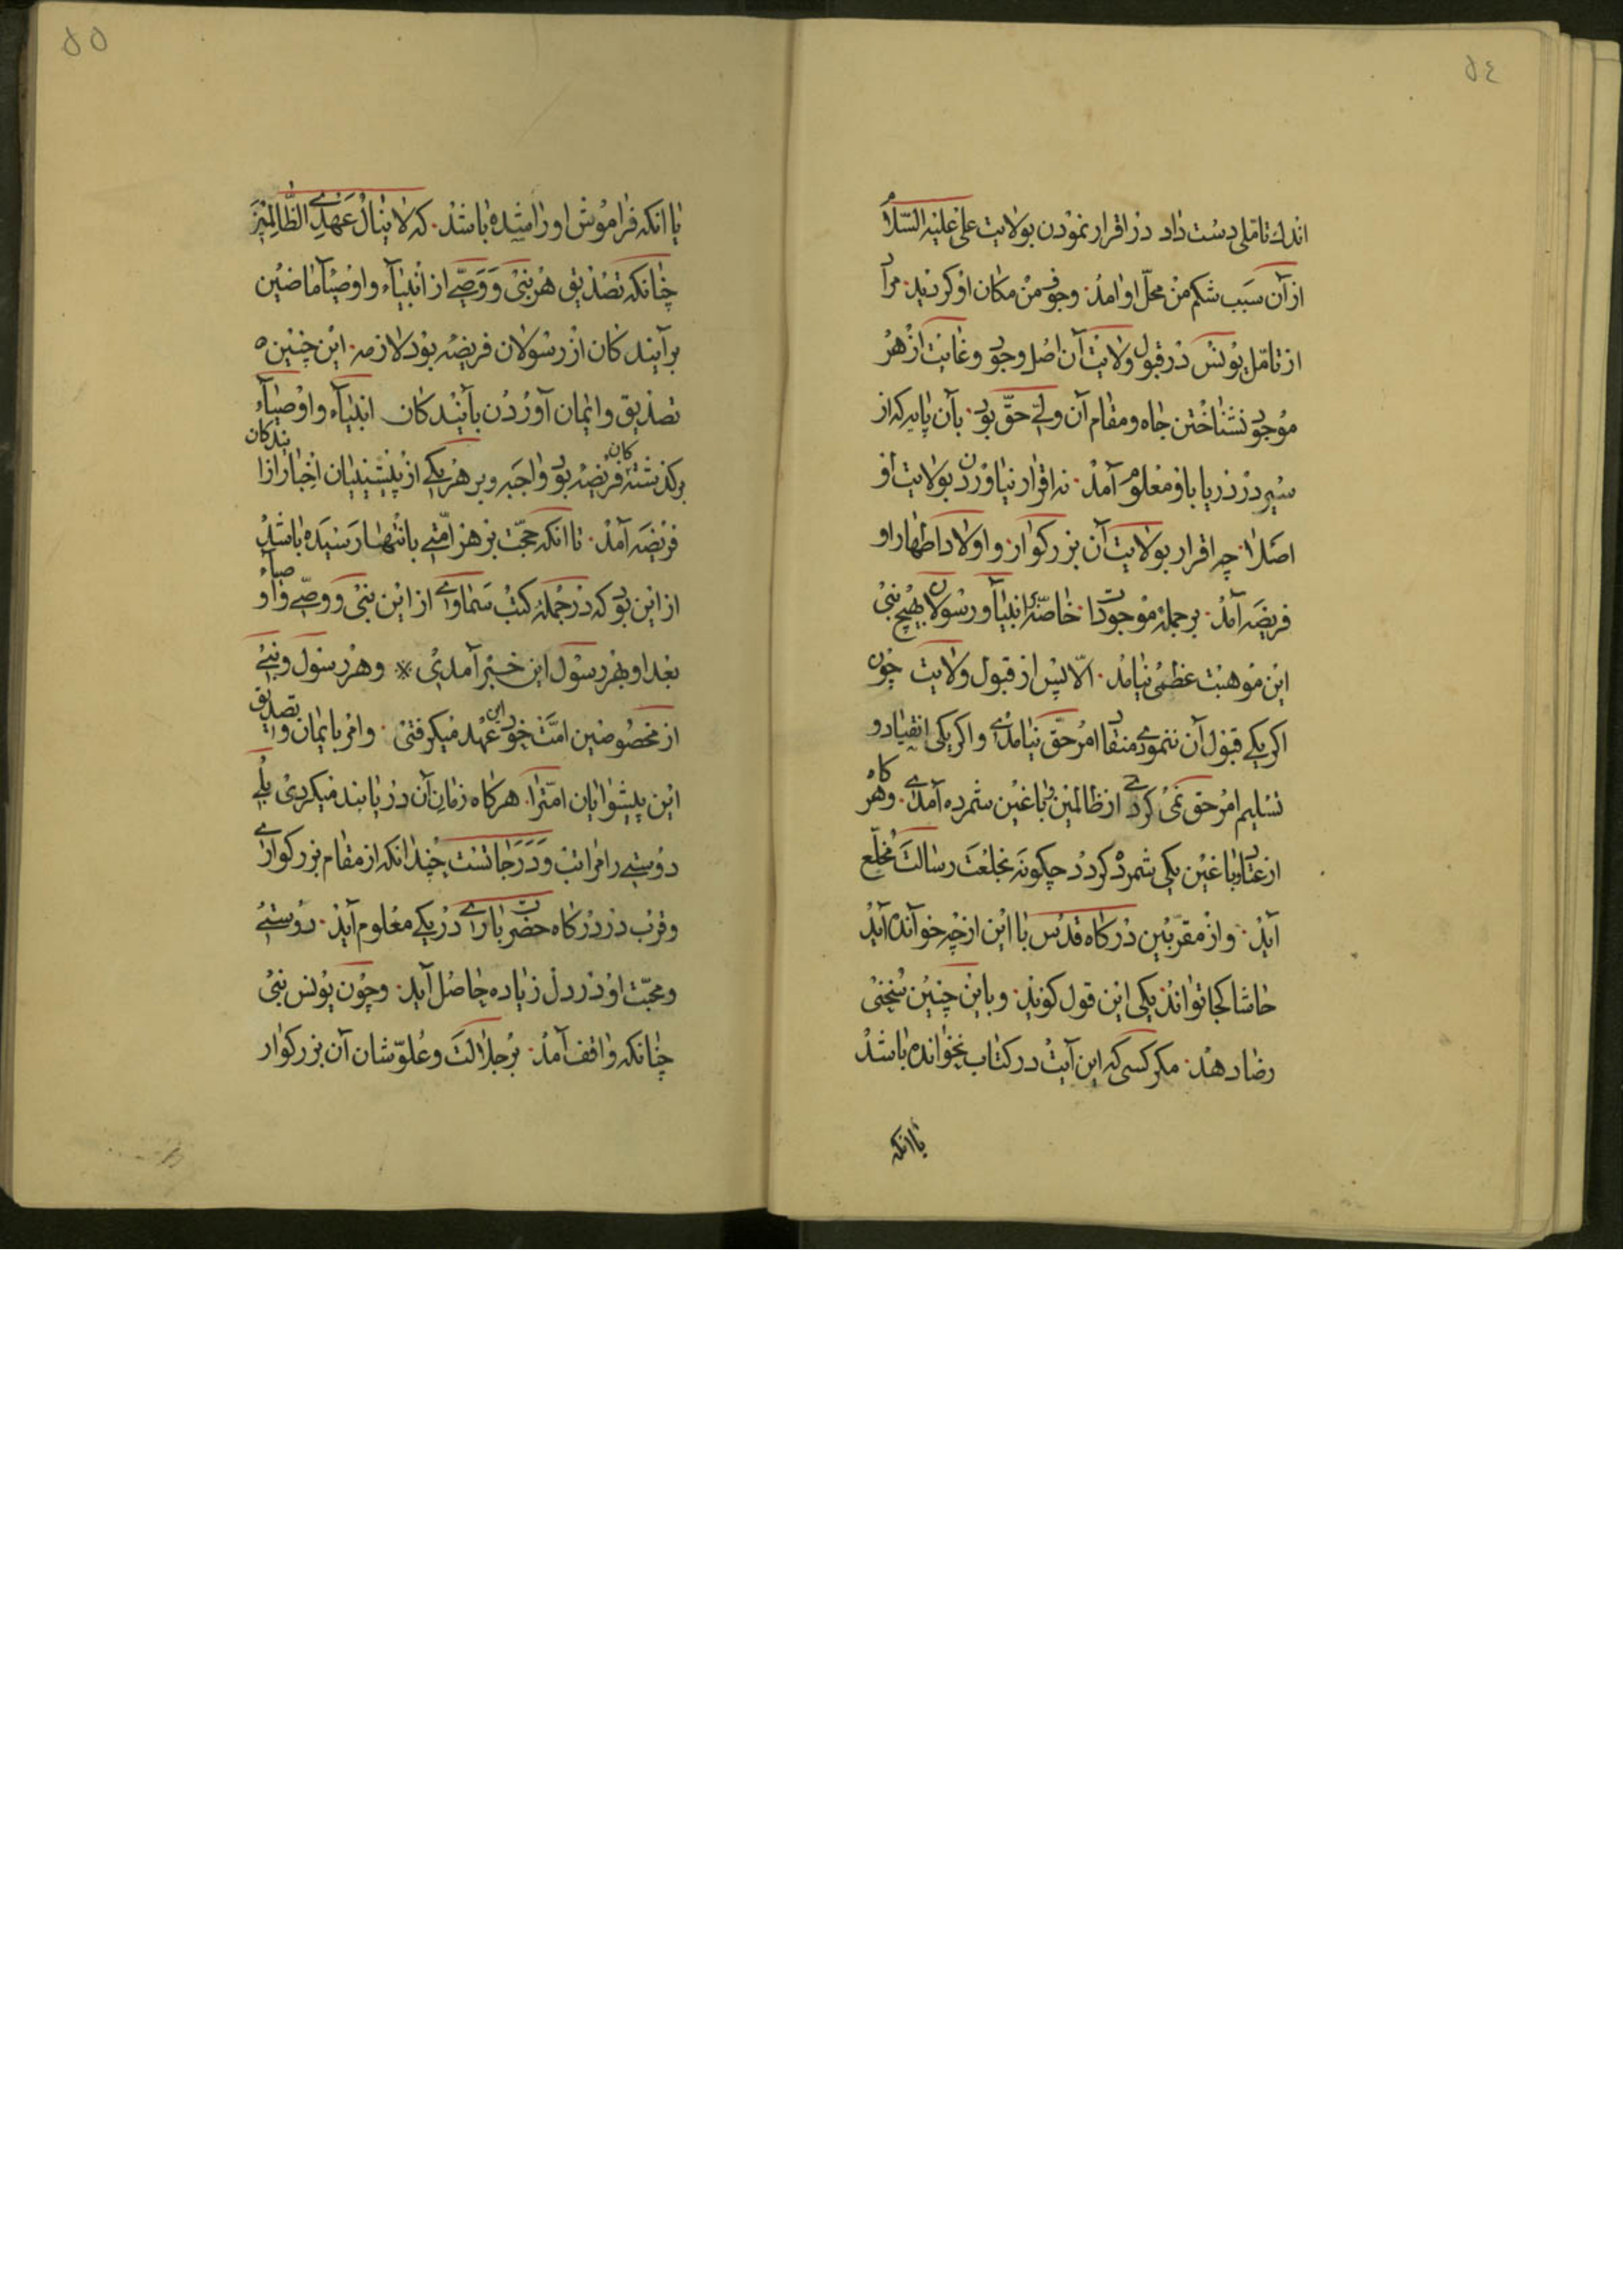 ٥٤
اندك تاملی دست داد در اقرار نمودن بولایت علی علیه السّلام
از آن سبب شکم من محلّ او امد. وجوف من مکان او کردید. مراد
از تامّل یونس در قبول ولایت آن اصل وجود وغایت از هر
موجود نشناختن جاه ومقام آن ولی حق بود. بآن پایه که از
سیر در دریا باو معلوم آمد. نه اقرار نیاوردن بولایت او
اصلا. چه اقرار بولایت آن بزرکوار. واولاد اطهار او
فریضه آمد. بر جملهٔ موجودات خاصّه بر انبیآ ورسولان بهیچ نبی
این موهبت عظمی نیامد. الّا پس از قبول ولایت چون
اکر یکی قبول آن ننمودی منقاد امر حق نیامدی واکر یکی انقیاد و
تسلیم امر حق نمی کردی از ظالمین وباغین شمرده آمدی. وهر کاه
از عتاد وباغین یکی شمرده کردد چکونه بخلعت رسالت مخلّع
آید. واز مقرّبین درکاه قدس با این از چه خوآنده آید
حاشا کجا تواند یکی این قول کوید. وباین چنین سخنی
رضا دهد. مکر کسی که این آیت در کتاب نخوانده باشد
یا انکه
٥٥
یا انکه فراموش او را مشیده باشد. که لا ینال عهدی الظّالمین
چنانکه تصدیق هر نبی ووصی از انبیآء واوصیآ ماضین
بر آیندکان از رسولان فریضه بود لازمه. این چنین
تصدیق وایمان آوردن بآیندکان انبیآء واوصیآء
بر کذشتکان فریضه بود واجبه وبر هر یکی از پیشینیان اخبار از ایندکان
فریضه آمد. تا انکه حجّت بر هر امّتی بانتهار رسیده باشد
از این بود که در جملهٔ کتب سماوی از این نبی ووصی واوصیآء
بعد او بهر رسول این خبر آمدی ※ وهر رسول ونبی
از مخصوصین امّت خود این عهد میکرفتی. وامر بایمان وتصدیق
این پیشوایان امّت را. هر کاه زمان آن دریابند میکردی بلی
دوستی را مراتب ودرجاتست چندانکه از مقام بزرکواری
وقرب در درکاه حضرت باری در یکی معلوم آید. دوستی
ومحبّت او در دل زیاده حاصل آید. وچون یونس نبی
چنانکه واقف آمد. بر جلالت وعلوّ شان آن بزرکوار